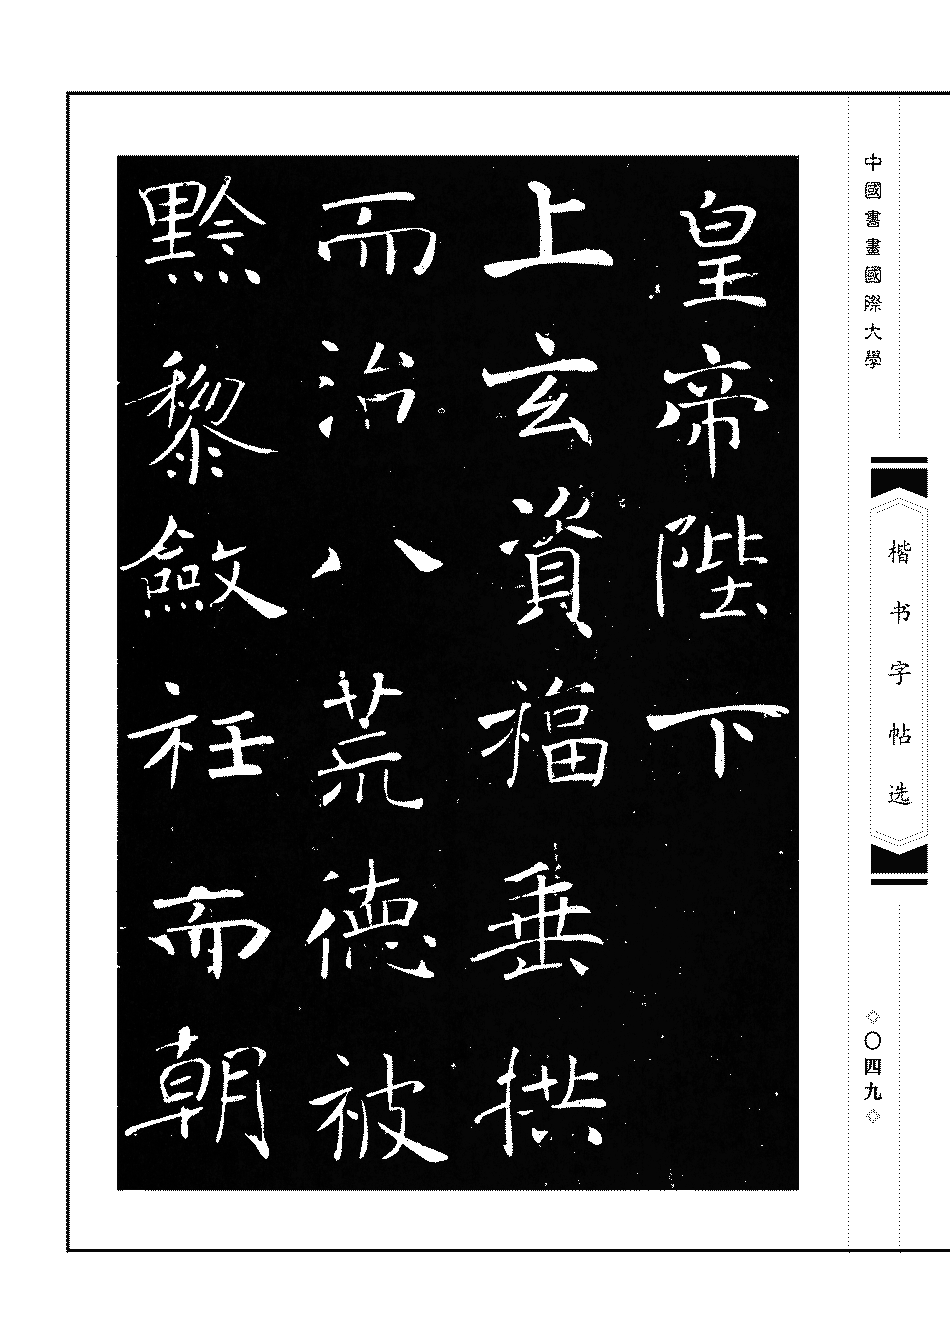 中國書畫國際大學
楷书字帖选
〇四九
皇帝陛下
上玄資福垂拱
而治八荒德被
黔黎斂衽而朝